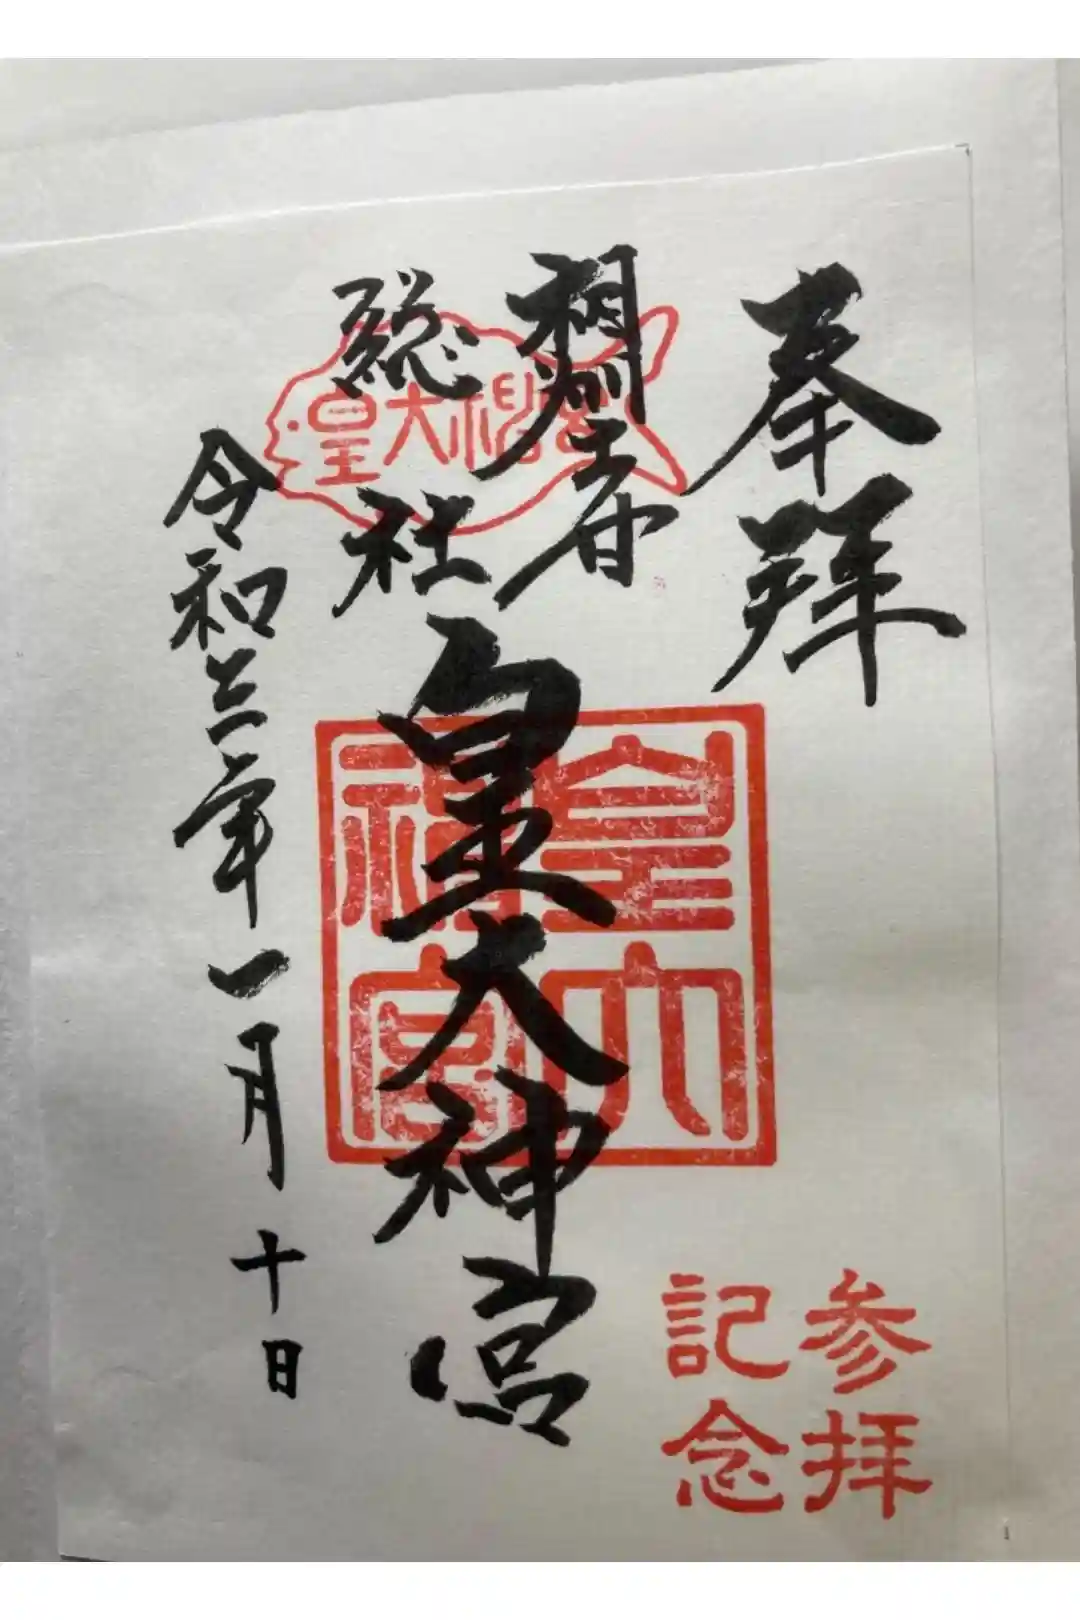 奉拝
相州土甘
総社
皇大神宮
令和三年一月十日
皇大神宮
皇大神宮
参拝
記念